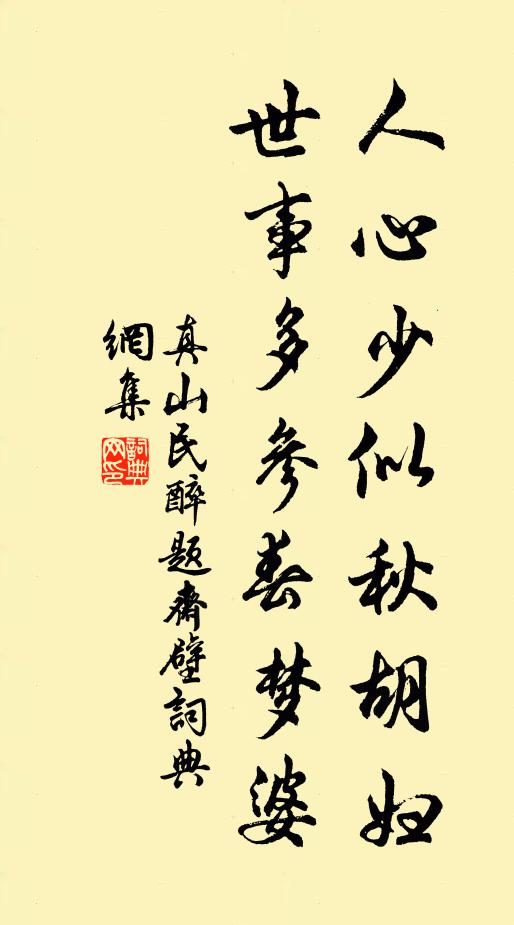 人心少似秋胡妇
世事多参春梦婆
真山民醉题斋壁詞典
網集
詞典
网印